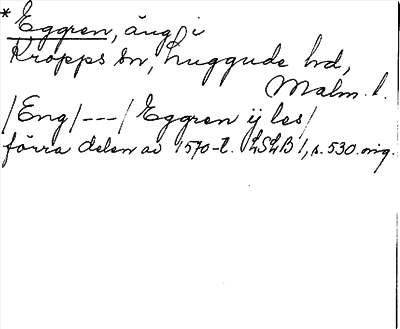 * Eggren, äng i
Kropps sn, Luggude hd,
Malm. l.
/Eng/ --- / Eggren ij les/
förra delen av 1570-t. LSLB 1, s. 530. orig.